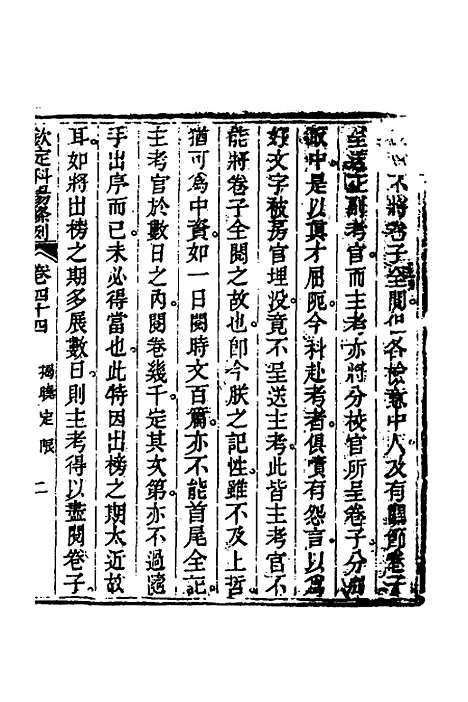 不將卷子全閱但各檢意中人及有關節卷子
呈送正副考官而主考亦將分校官所呈卷子分
取中是以真才屈阨今科赴考者俱賷有怨言以爲
好文字被房官埋没竟不呈送主考此皆主考官不
能將卷子全閱之故也卽今朕之記性雖不及上哲
猶可爲中資如一日閱時文百篇亦不能首尾全記
主考官於數日之內閱卷幾千定其次第亦不過隨
手出序而已未必得當也此特因出榜之期太近故
耳如將出榜之期多展數日則主考得以盡閱卷子
欽定科場條例 卷四十四 揭曉定限 二